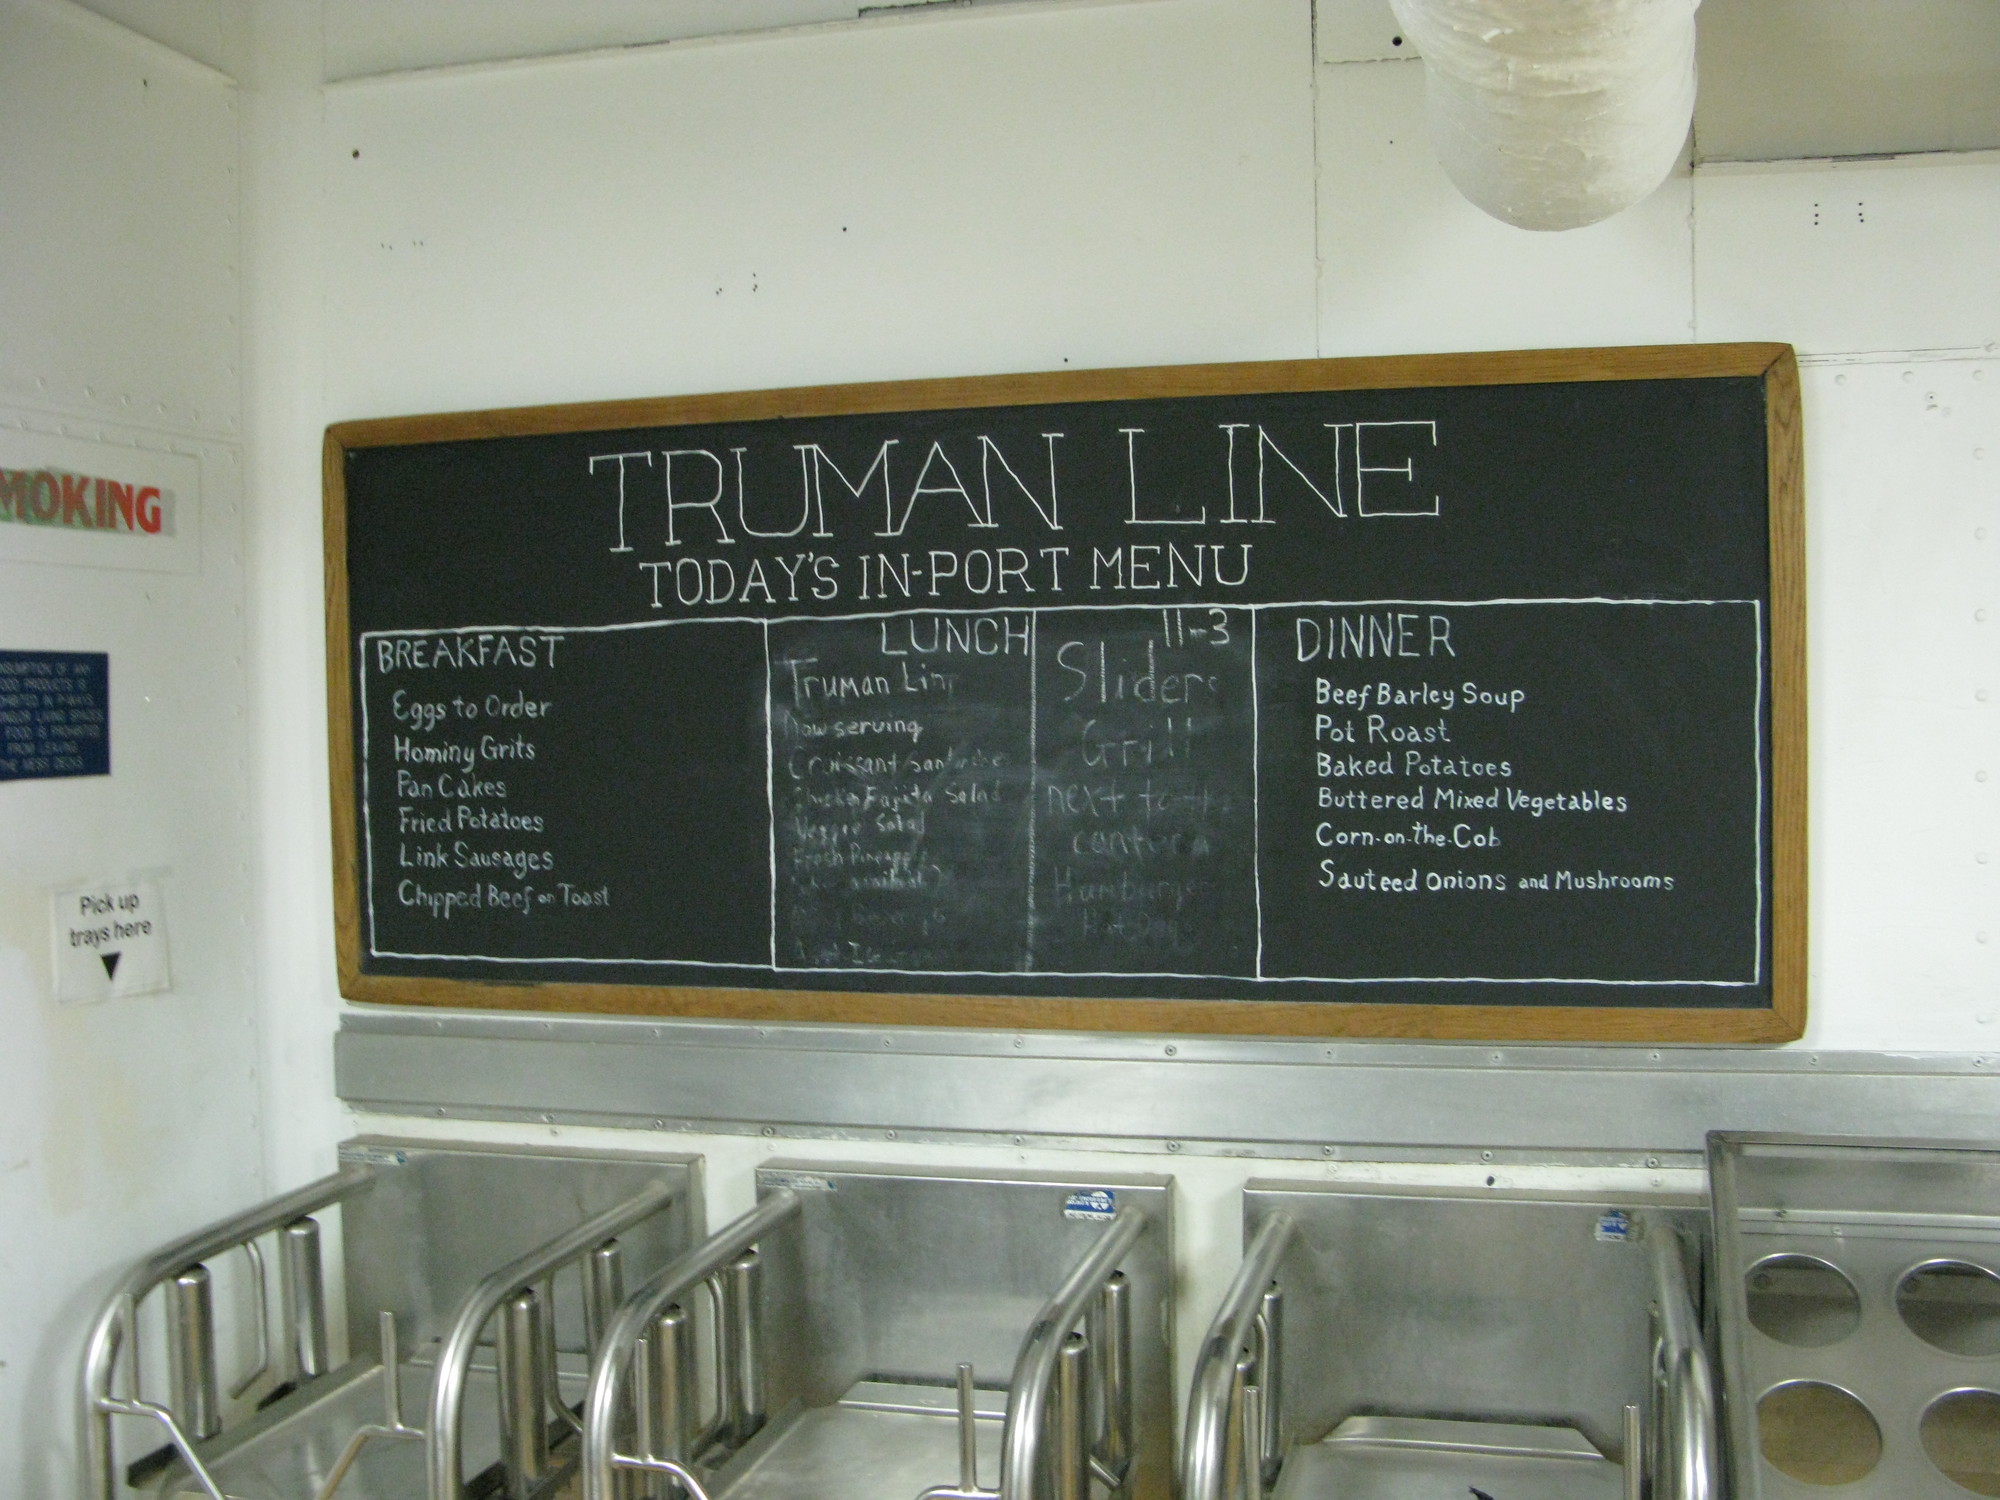 TRUMAN LINE
TODAY'S IN-PORT MENU
BREAKFAST
Eggs to Order
Hominy Grits
Pan Cakes
Fried Potatoes
Link Sausages
Chipped Beef on Toast
LUNCH
Truman Lin
Now serving
Croissant
Chicken Fajita Salad
Veggie Salad
Fresh Pineapple
11-3
Sliders
Grill
next to the
Hamburger
Hot Dog
DINNER
Beef Barley Soup
Pot Roast
Baked Potatoes
Buttered Mixed Vegetables
Corn-on-the-Cob
Sauteed Onions and Mushrooms
MOKING
NSUMPTION OF ANY
OOD PRODUCTS IS
OHIBITED IN P-WAYS,
LIVING SPACES
FOOD IS PROHIBITED
FROM LEAVING
THE MESS DECKS
Pick up
trays here